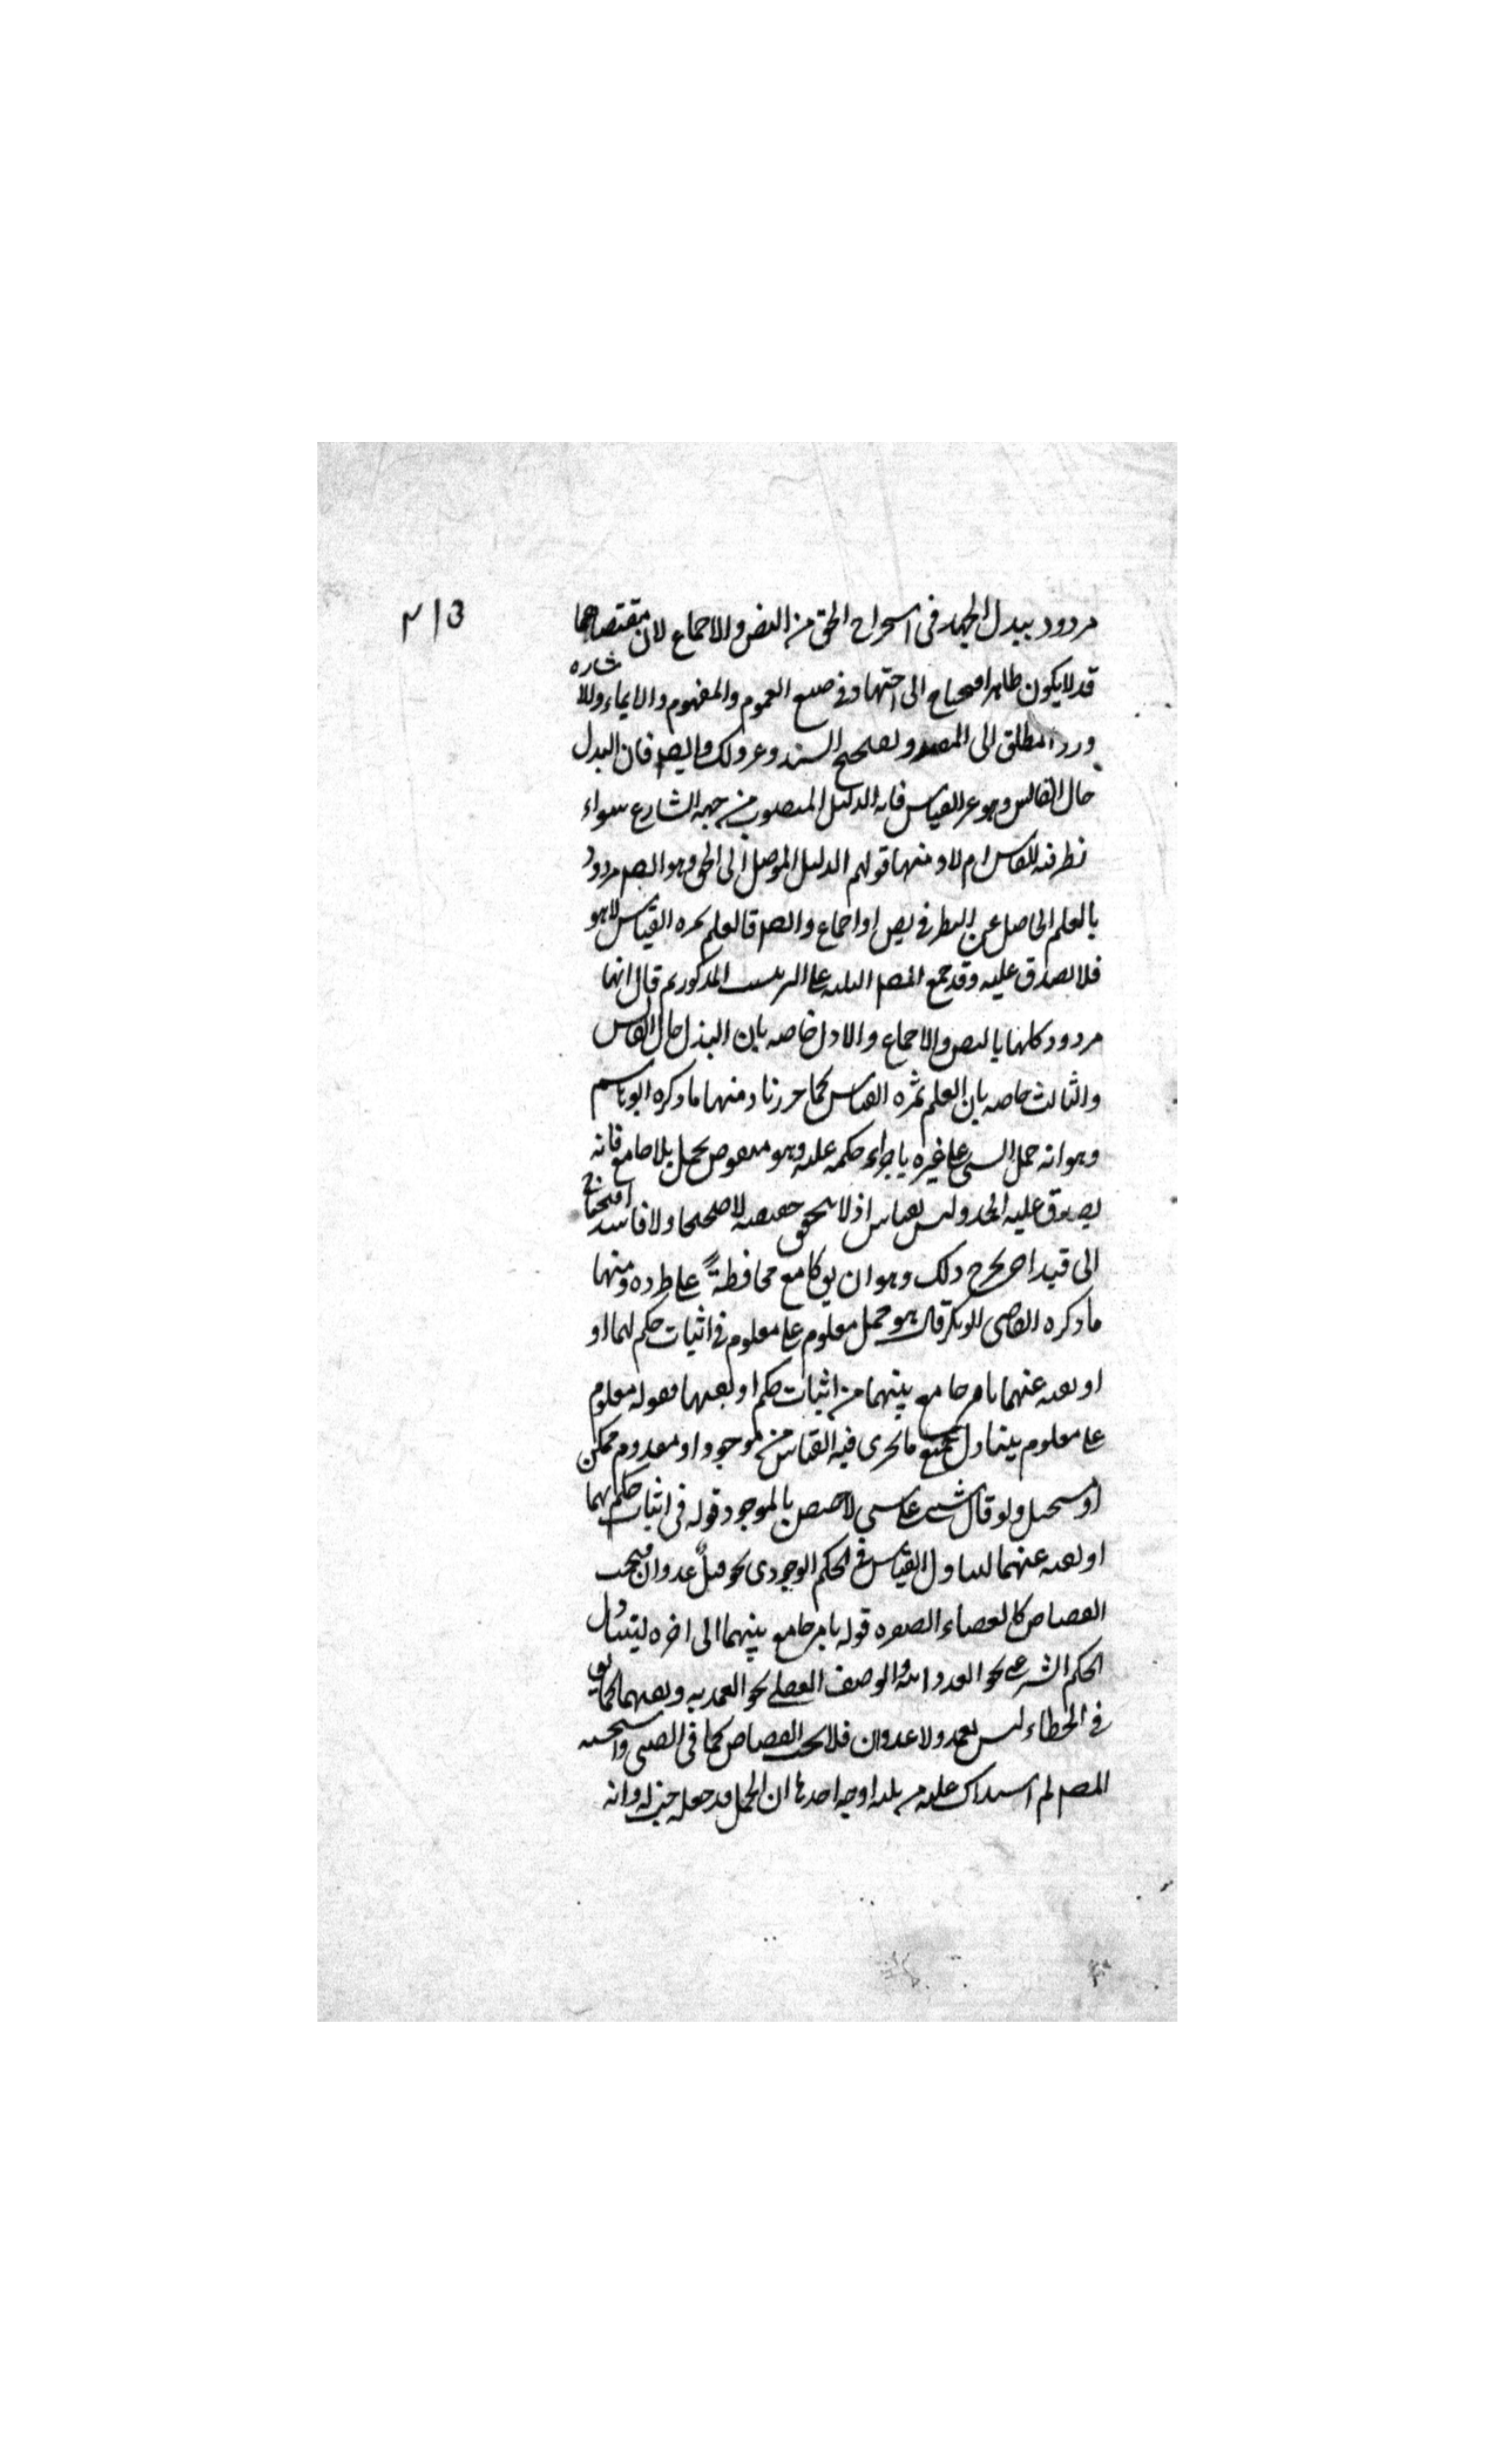 مردود ببدل الجهد فى استخراج الحق من النص والاجماع لان مقتضاهما
قد لا يكون ظاهرا فيحتاج الى اجتهاد فى صيغ العموم والمفهوم والايماء والاشاره
ورد المطلق الى المقيد وتصحيح السند وغير ذلك وايضا فان البدل
حال القايس وهو غير القياس فانه الدليل المنصوب من جهه الشارع سواء
نظر فيه القايس ام لا ومنها قولهم الدليل الموصل الى الحق وهو ايضا مردود
بالعلم الحاصل عن النظر فى نص او اجماع وايضا فالعلم ثمره القياس لا هو
فلا يصدق عليه وقد جمع المصـ الثلثه على الترتيب المذكور ثم قال انها
مردود كلها بالنص والاجماع والاول خاصه بان البذل حال القايس
والثالث خاصه بان العلم ثمره القياس كما حررنا ومنها ما ذكره ابو هاشم
وهو انه حمل الشى على غيره باجراء حكمه عليه وهو منقوص بحمل بلا جامع فانه
يصدق عليه الحد وليس بقياس اذ لا يتحقق حقيقته لا صحيحا ولا فاسدا فيحتاج
الى قيد اخر يخرج ذلك وهو ان يق بجامع محافظةً على طرده ومنها
ما ذكره القاضى ابو بكر قال هو حمل معلوم على معلوم فى اثبات حكم لهما او
او نفيه عنهما بامر جامع بينهما من اثبات حكم او نفيهما فقوله معلوم
على معلوم يتناول جميع ما يجرى فيه القياس من موجود او معدوم ممكن
او مستحيل ولو قال شى على شى لاختص بالموجود قوله فى اثبات حكم لهما
او نفيه عنهما ليتناول القياس فى الحكم الوجودى نحو قتلٌ عدوان فيجب
القصاص كالعصاء الصغره قوله بامر جامع بينهما الى اخره ليتناول
الحكم الشرعى نحو العدوانيه والوصف العقلى نحو العمديه ونفيهما كما يق
فى الخطاء ليس بعمد ولا عدوان فلا يجب القصاص كما فى الصبى واستحسنه
المصـ ثم استدرك عليه من ثلثه اوجه احدها ان الحمل قد جعله جنسا له وانه